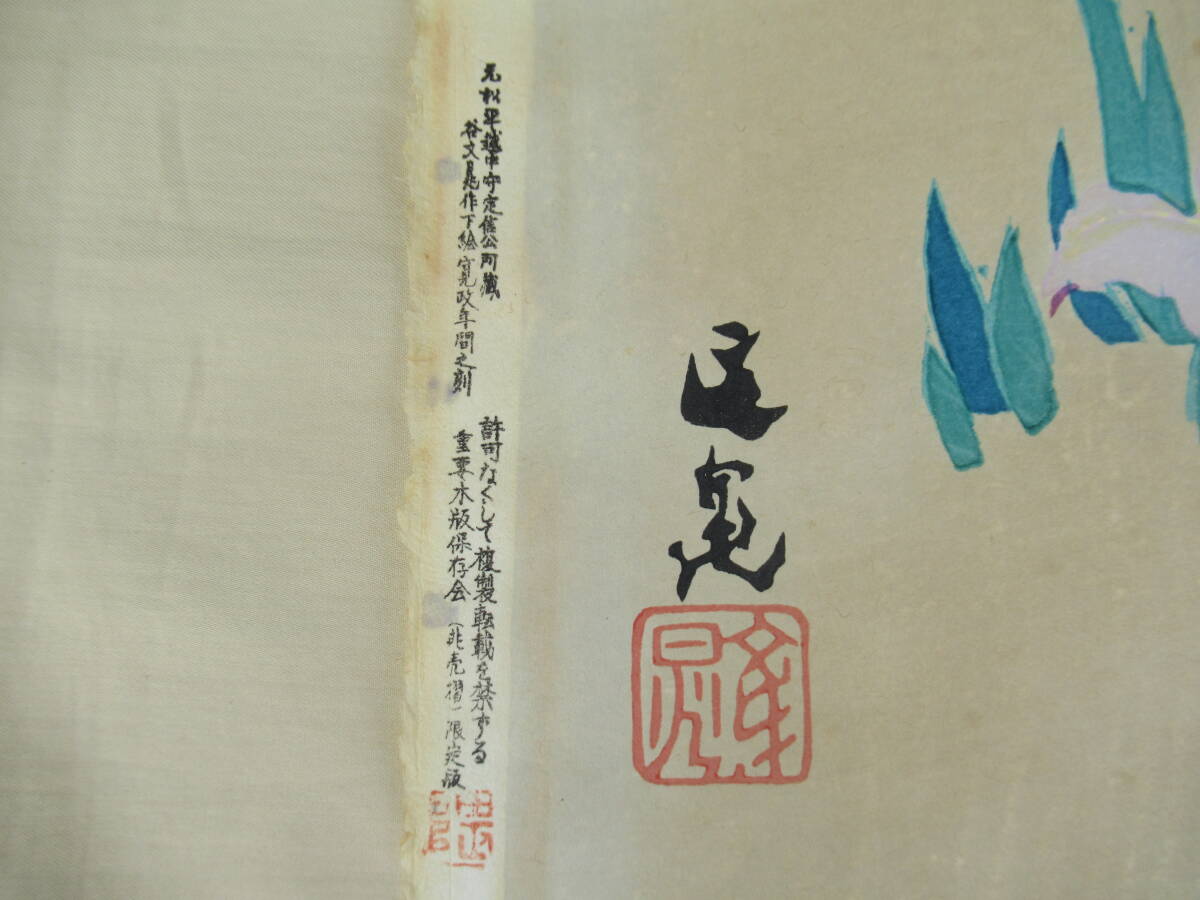 元松平越中守定信公所蔵
谷文晁作下絵寛政年間之刻
許可なくして複製転載を禁ずる
重要木版保存会(非売摺)限定版
文晁